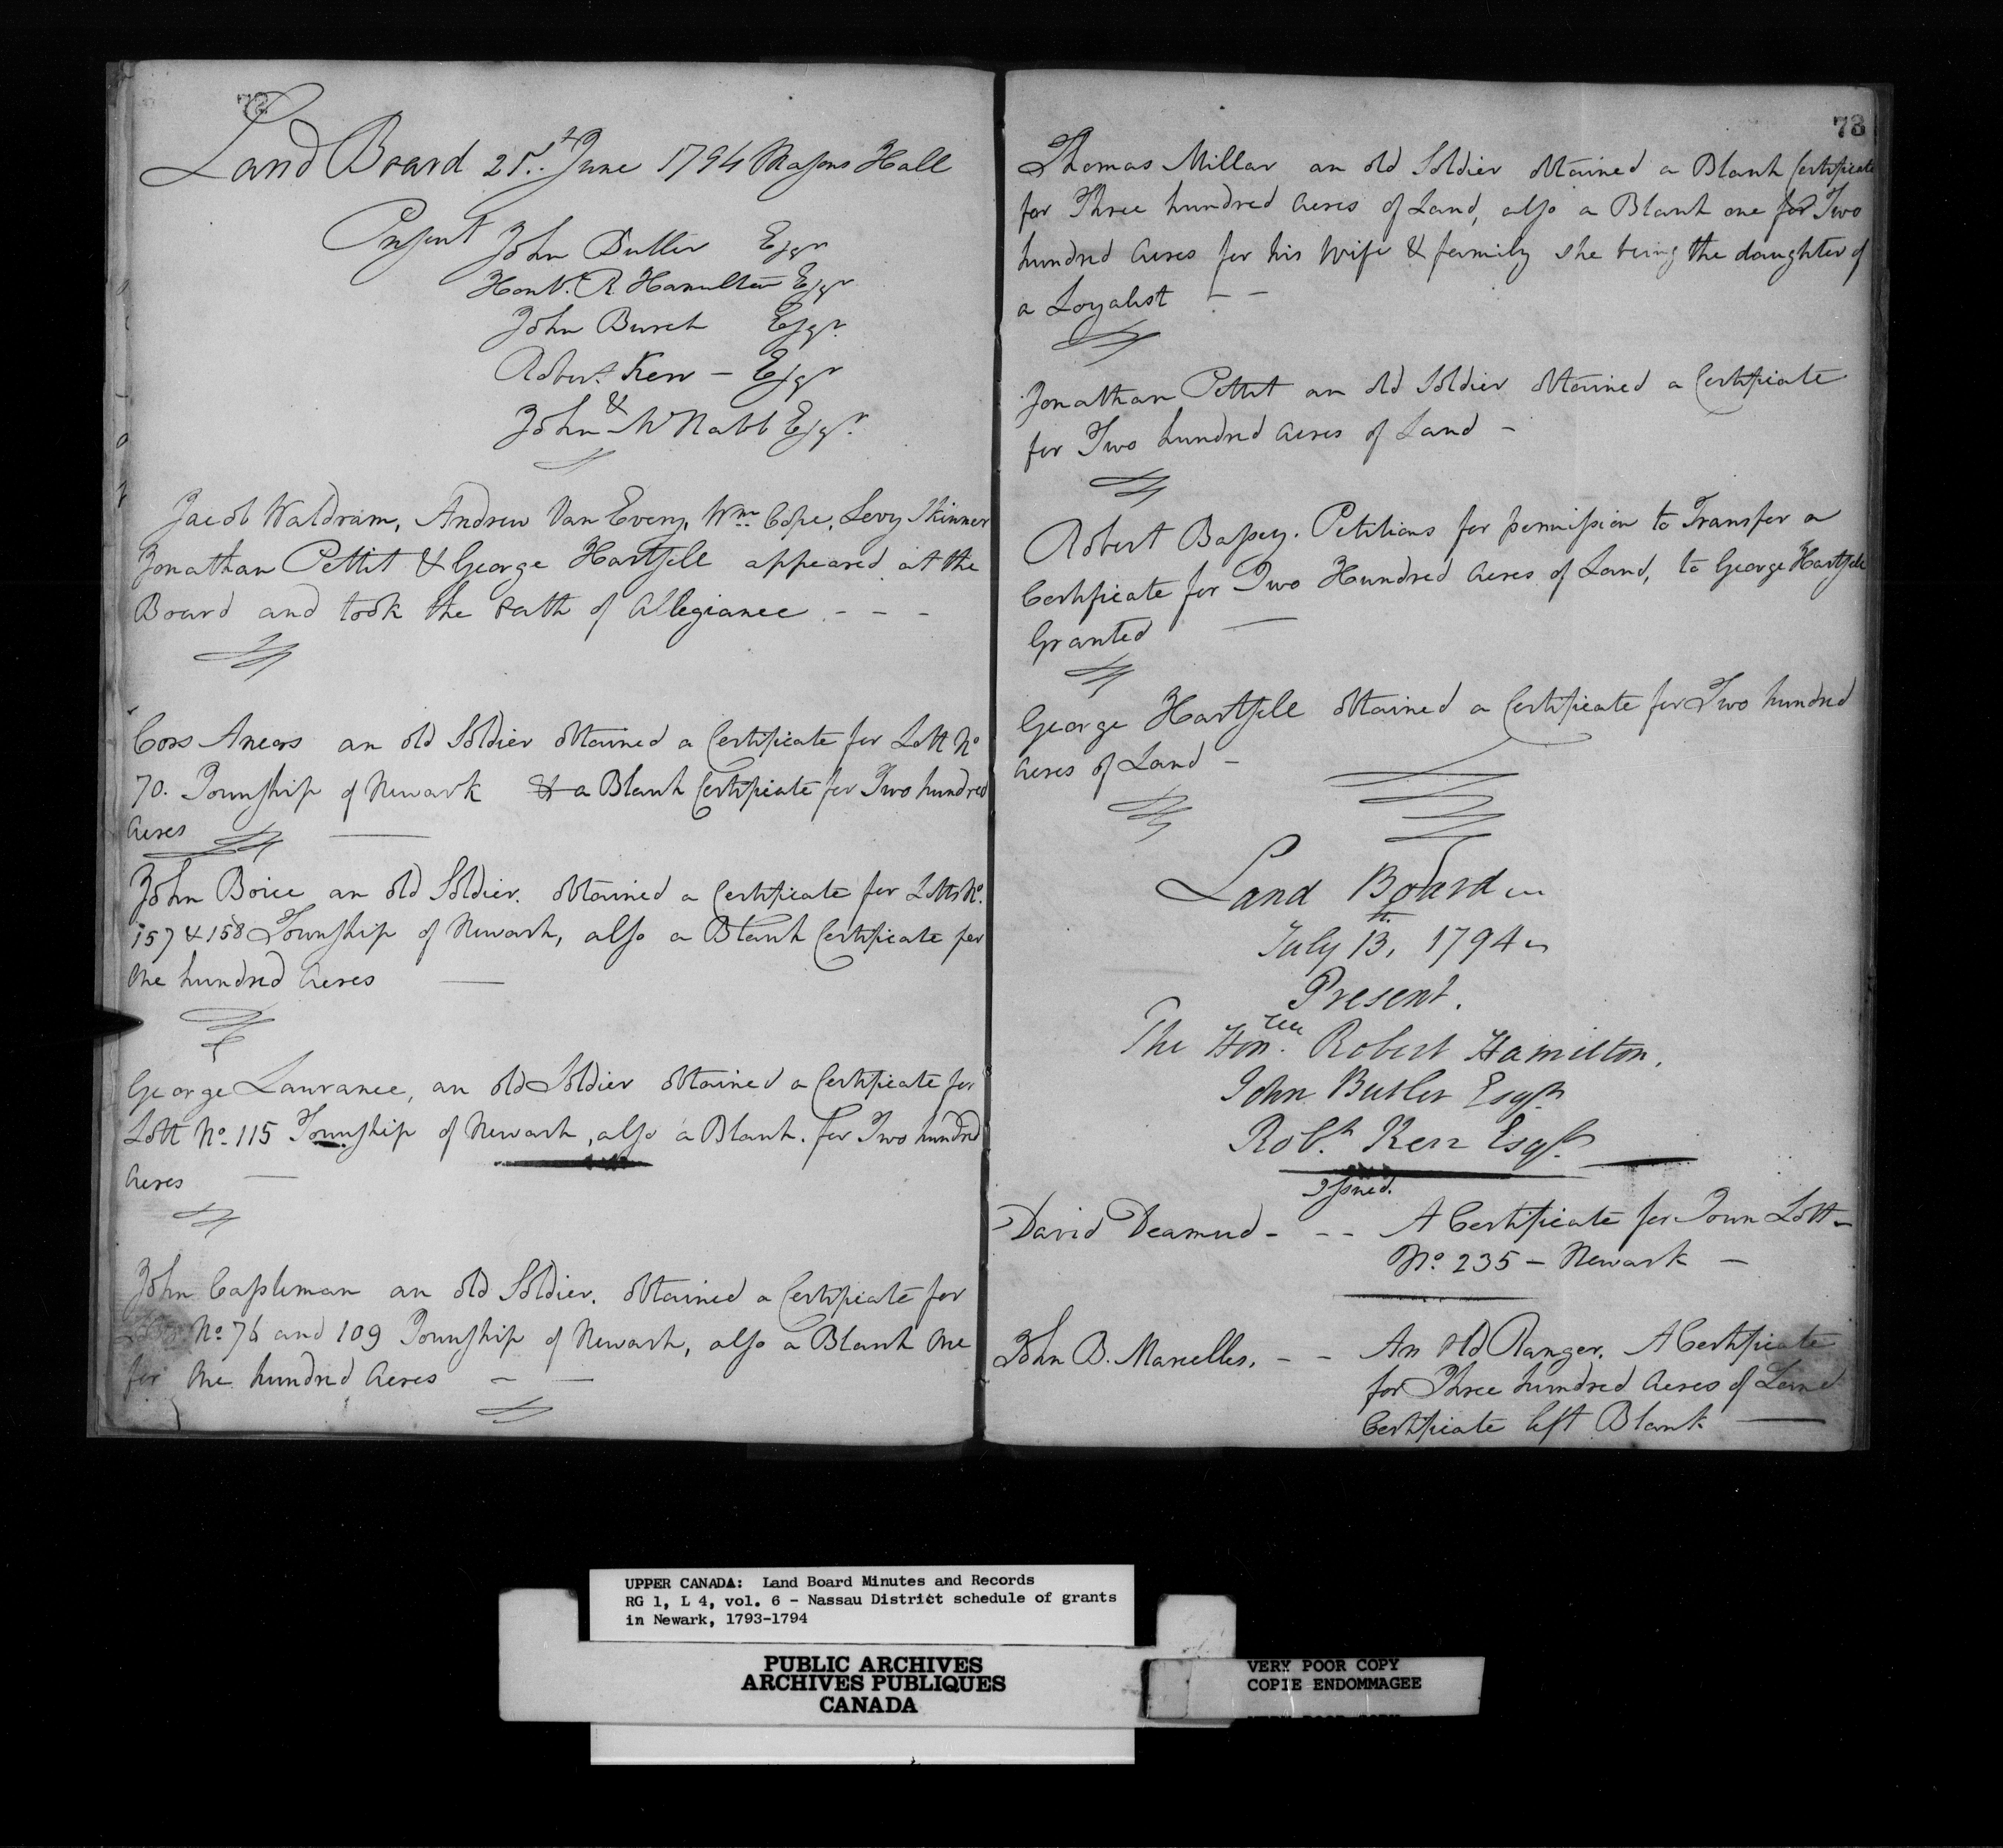 72
Land Board 21st June 1794 Masons Hall
Present John Butler Esqr
Honbl. R. Hamilton Esqr
John Burch Esqr.
Robert Kerr - Esqr
&
John McNabb Esqr.
Jacob Waldram, Andrew Van Every, Wm. Cope, Levy Skinner
Jonathan Pettit & George Hartsell appeared at the
Board and took the oath of Allegiance - - -
an old Soldier obtained a Certificate for Lott No
70. Township of Newark & a Blank Certificate for Two hundred
Acres
John Boice an old Soldier. obtained a Certificate for Lotts No.
157 & 158 Township of Newark, also a Blank Certificate for
One hundred Acres
George Laurance, an old Soldier obtained a Certificate for
Lott No. 115 Township of Newark, also a Blank. for Two hundred
Acres
John Capleman an old Soldier. obtained a Certificate for
Lotts No 76 and 109 Township of Newark, also a Blank One
for One hundred Acres
73
Thomas Millar an old Soldier obtained a Blank Certificate
for Three hundred Acres of Land, also a Blank one for Two
hundred Acres for his Wife & family she being the daughter of
a Loyalist - -
Jonathan Pettit an old Soldier obtained a Certificate
for Two hundred Acres of Land -
Robert Bassey. Petitions for permission to Transfer a
Certificate for Two Hundred Acres of Land, to George Hartsell
Granted
George Hartsell obtained a Certificate for Two hundred
Acres of Land -
Land Board
July 13th. 1794
Present.
The Honble. Robert Hamilton.
John Butler Esqr
Robt. Kerr Esqr.
Issued.
David Deamud - - - A Certificate for Town Lott -
No. 235 - Newark -
John B. Marcelles. - - An old Ranger. A Certificate
for Three hundred Acres of Land
Certificate left Blank
UPPER CANADA: Land Board Minutes and Records
RG 1, L 4, vol. 6 - Nassau District schedule of grants
in Newark, 1793-1794
PUBLIC ARCHIVES
ARCHIVES PUBLIQUES
CANADA
VERY POOR COPY
COPIE ENDOMMAGEE